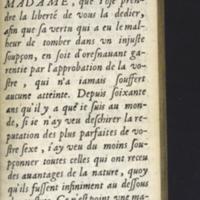 MADAME, que i'ose pren-
dre la liberté de vous la dédier,
afin que sa vertu qui a eu le mal-
heur de tomber dans vn injuste
soupçon, en soit d'oresnauant ga-
rentie par l'approbation de la vo-
stre, qui n'a iamais souffert
aucune atteinte. Depuis soixante
ans qu'il y a que ie suis au mon-
de, si ie n'ay veu deschirer la re-
putation des plus parfaites de vo-
stre sexe, i'ay veu du moins soup-
çonner toutes celles qui ont receu
des auantages de la nature, quoy
qu'ils fussent infiniment au dessous
n'est point vne ma-